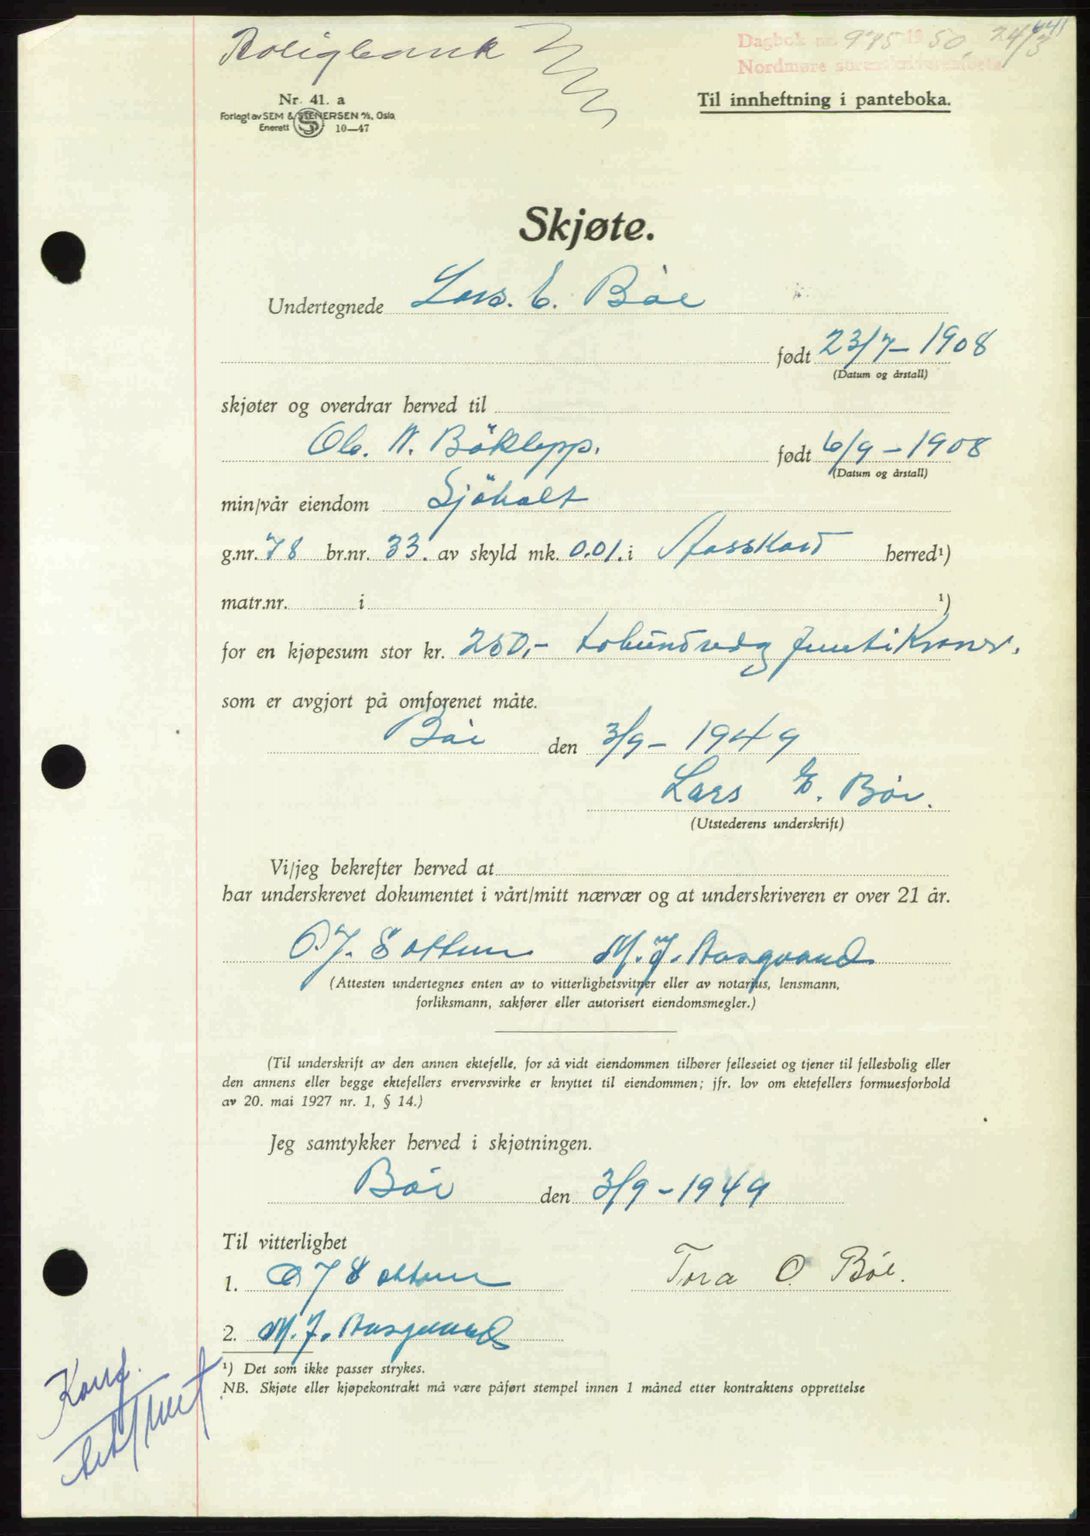 Boligbank
Dagbok nr. 975 1950, 24/3
Nordmøre sorenskriverembete
Nr. 41. a
Forlagt av SEM & STENERSEN A/S, Oslo
Enerett 10—47
Til innheftning i panteboka.
Skjøte.
Undertegnede Lars. E. Böe
født 23/7 - 1908
(Datum og årstall)
skjøter og overdrar herved til
Ole. N. Böklepp. født 6/9 - 1908
(Datum og årstall)
min/vår eiendom Sjöholt
g.nr. 78 br.nr. 33. av skyld mk. 0.01. i herred¹)
matr.nr. i ¹)
for en kjøpesum stor kr. 250,- tohundredeog femti Kroner.
som er avgjort på omforenet måte.
Böe den 3/9 - 1949
Lars E. Böe.
(Utstederens underskrift)
Vi/jeg bekrefter herved at
har underskrevet dokumentet i vårt/mitt nærvær og at underskriveren er over 21 år.
O.J. Settem M.J. Aasgaard
(Attesten undertegnes enten av to vitterlighetsvitner eller av notarius, lensmann,
forliksmann, sakfører eller autorisert eiendomsmegler.)
(Til underskrift av den annen ektefelle, for så vidt eiendommen tilhører felleseiet og tjener til fellesbolig eller
den annens eller begge ektefellers ervervsvirke er knyttet til eiendommen; jfr. lov om ektefellers formuesforhold
av 20. mai 1927 nr. 1, § 14.)
Jeg samtykker herved i skjøtningen.
Böe den 3/9 - 1949
Til vitterlighet
1. O J Settem Tora O. Böe.
2. M.J. Aasgaard
¹) Det som ikke passer strykes.
NB. Skjøte eller kjøpekontrakt må være påført stempel innen 1 måned etter kontraktens opprettelse
Konf.